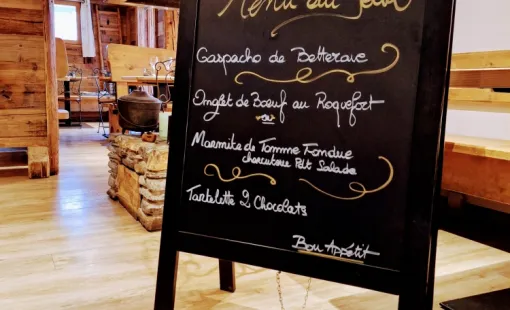 Menu du Jour
Gaspacho de Betterave
Onglet de Bœuf au Roquefort
ou
Marmite de Tomme Fondue
charcuterie Pdt Salade
Tartelette 2 Chocolats
Bon Appétit